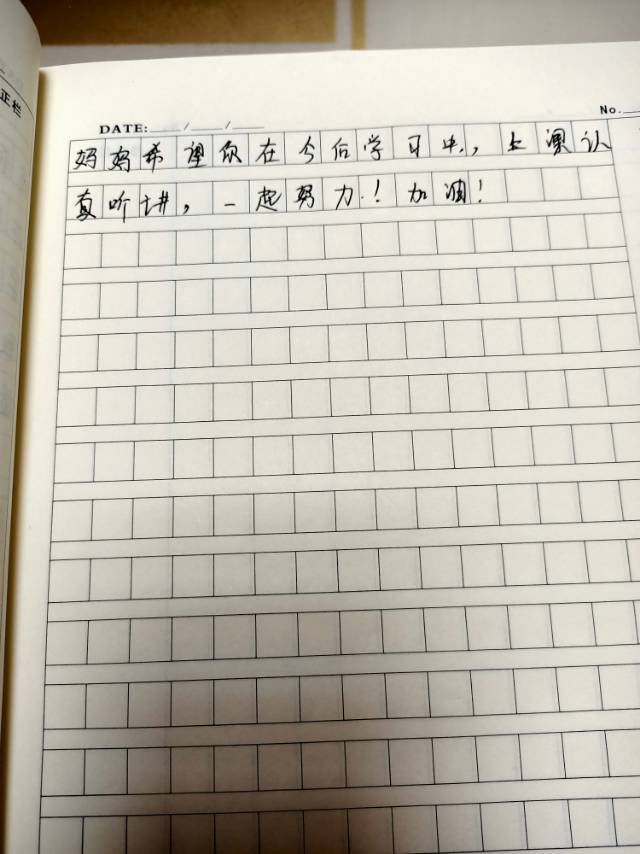 正栏
DATE: / /
No.
妈妈希望你在今后学习中，上课认
真听讲，一起努力！加油！